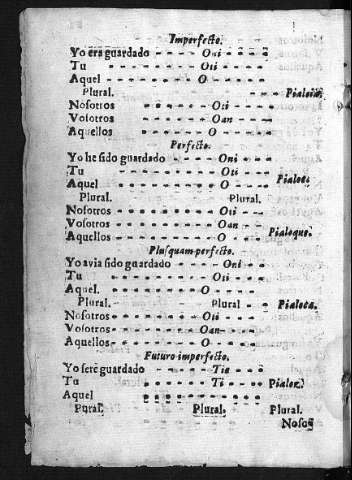 Imperfecto.
Yo era guardado - - - Oni - - -
Tu - - - - - Oti - - -
Aquel - - - - - O - - - -
Plural. Pialoia.
Nosotros - - - - Oti - - -
Vosotros - - - - Oan - - -
Aquellos - - - - O - - - -
Perfecto.
Yo he sido guardado - - - Oni - - -
Tu - - - - - Oti - - -
Aquel - - - - - O - - - - Pialoc.
Plural. Plural.
Nosotros - - - - Oti - - -
Vosotros - - - - Oan - - -
Aquellos - - - - O - - - - Pialoque.
Plusquam perfecto.
Yo avia sido guardado - - - Oni - -
Tu - - - - - Oti - - -
Aquel. - - - - O - - - -
Plural. - - - Plural - - Pialoca.
Nosotros - - - - Oti - - -
Vosotros - - - - Oan - - -
Aquellos - - - - O - - - -
Futuro imperfecto.
Yo sere guardado - - - Tie - - -
Tu - - - - - Ti - - - Pialoz.
Aquel - - - - - - - -
Pural. Plural. Plural.
Nosos